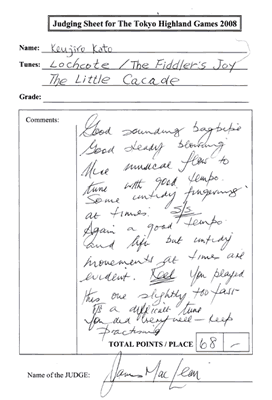 Judging Sheet for The Tokyo Highland Games 2008
Name: Keujiro Kato
Tunes: Lochcote / The Fiddler's Joy
The Little Cacade
Grade:
Comments:
Good sounding bagpipe
Good steady blowing
Nice musical flow to
tune with good tempo.
Some untidy fingering
at times. S/S
Again a good tempo
and lift but untidy
movements at times are
evident. Reel You played
this one slightly too fast
It's a difficult tune
You did very well - keep
practising
TOTAL POINTS / PLACE 68 -
Name of the JUDGE: James MacLean